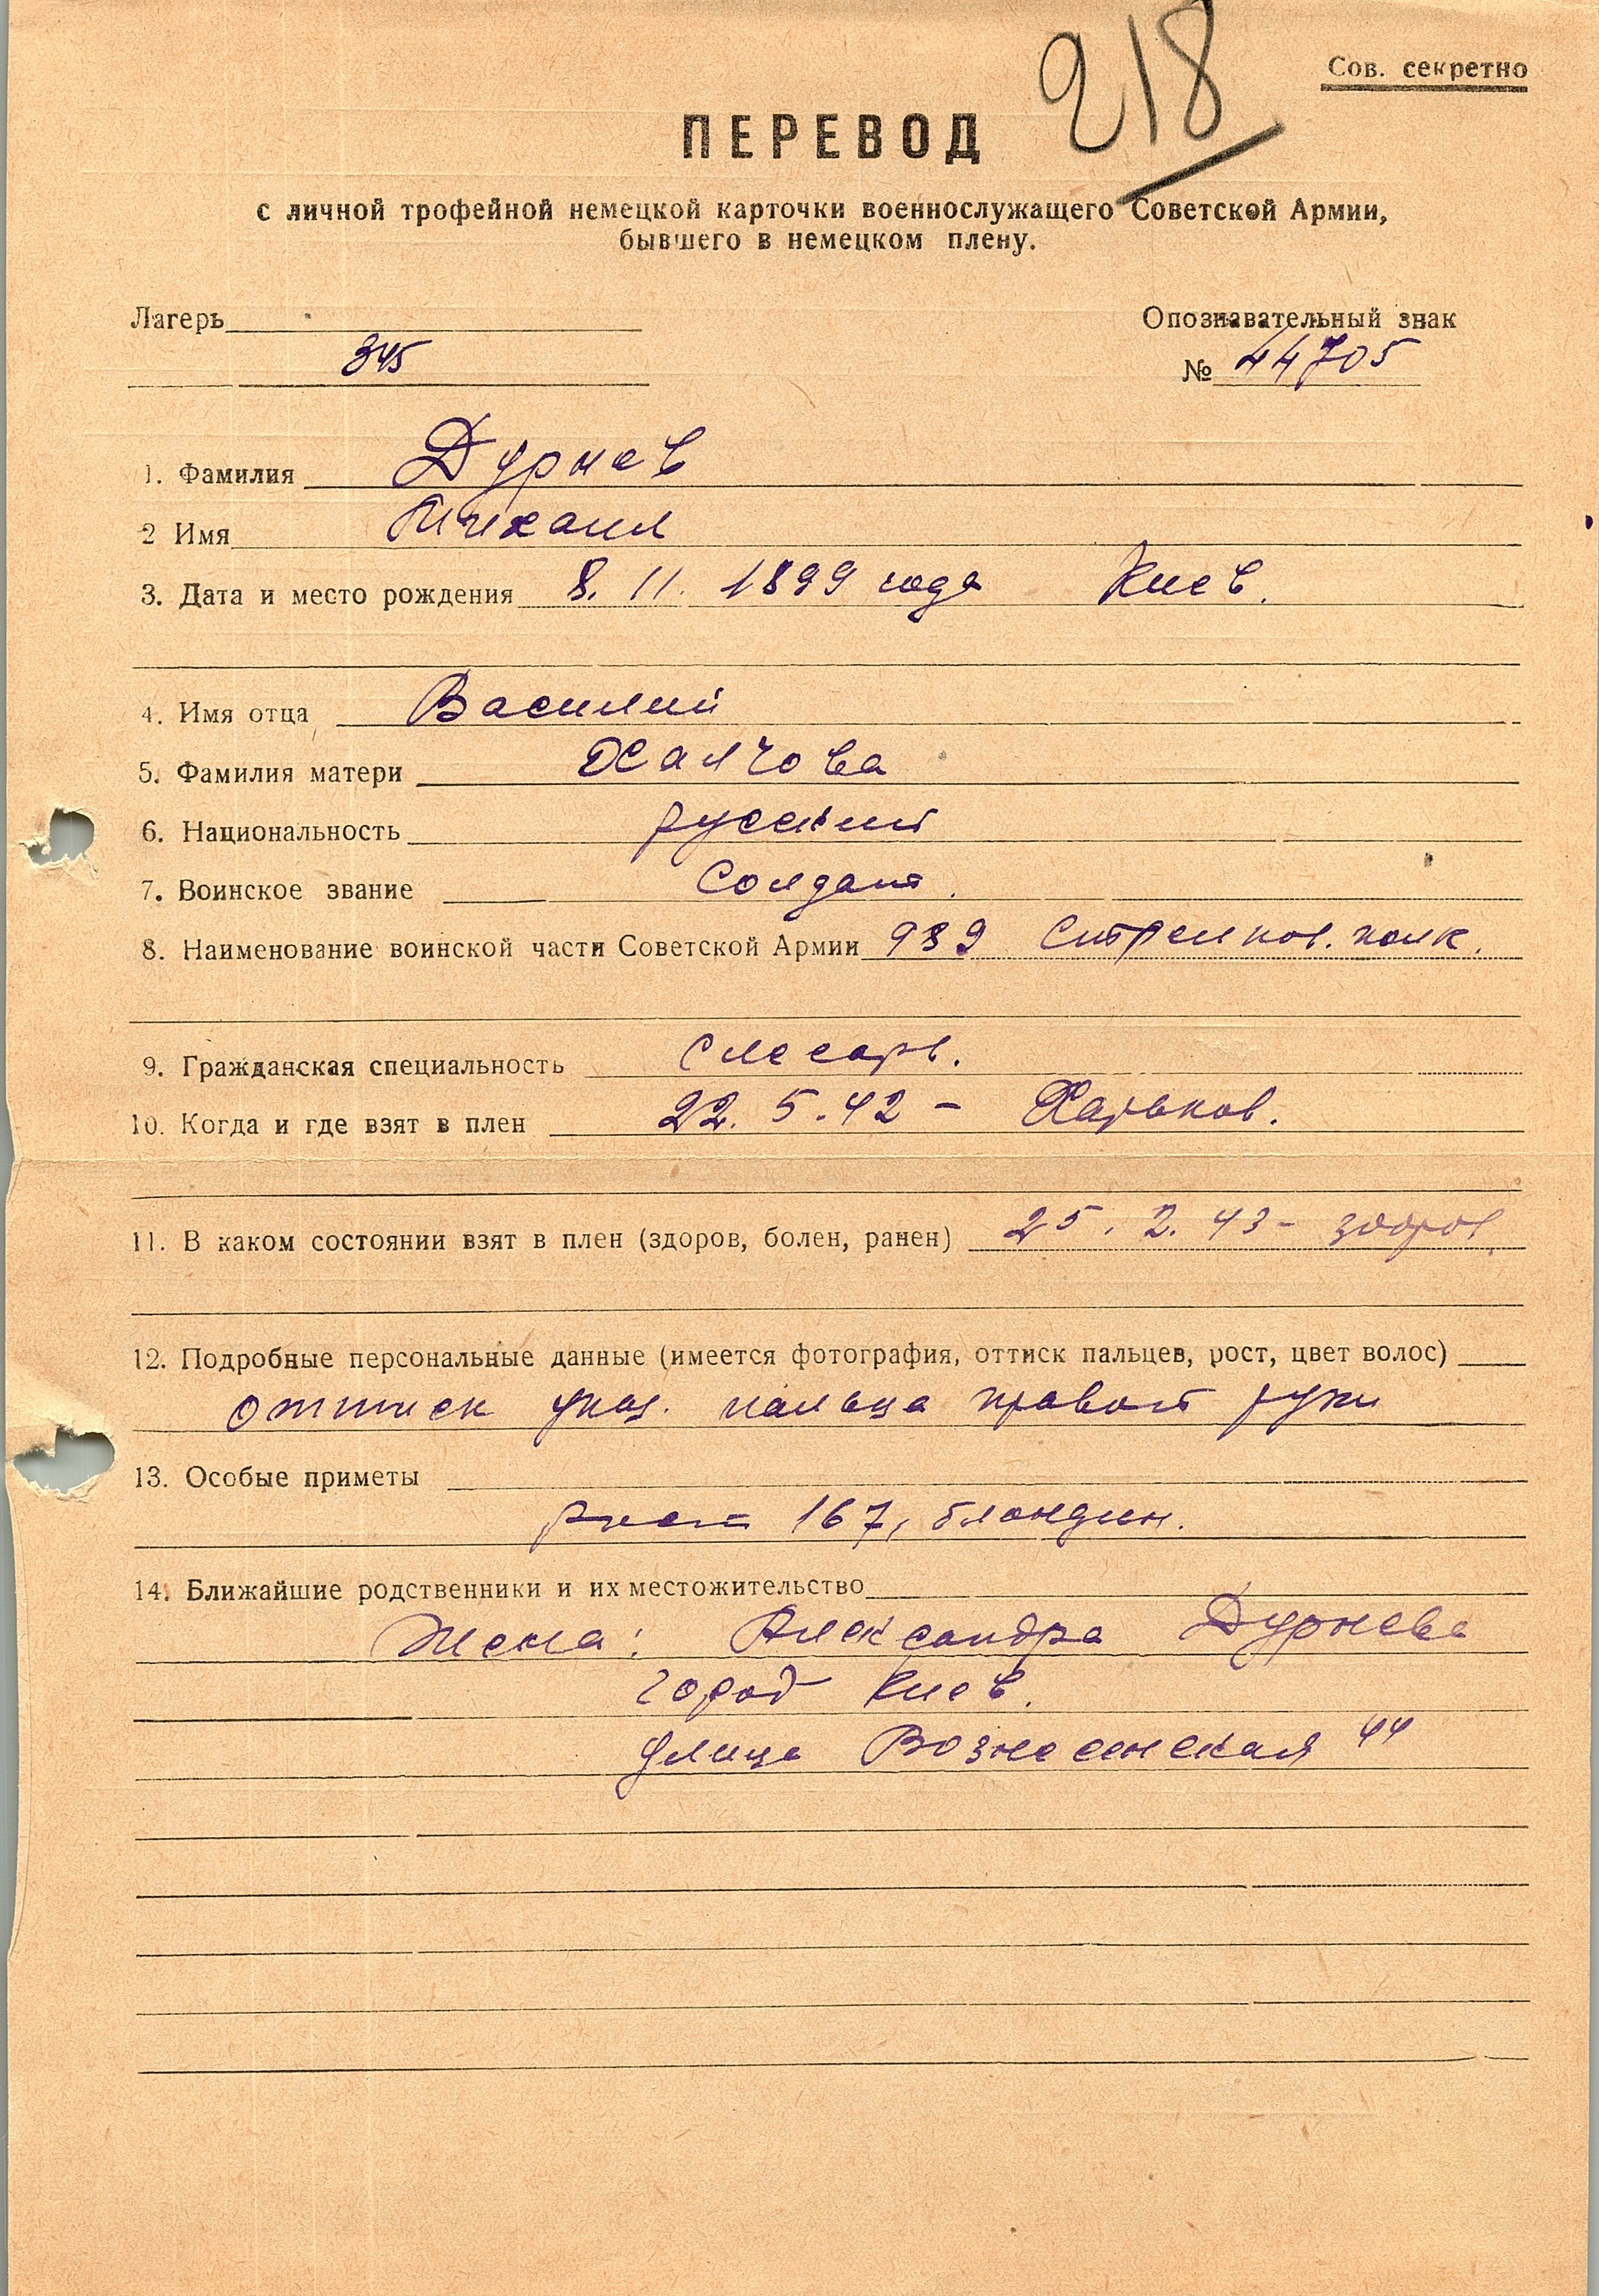 218
Сов. секретно
ПЕРЕВОД
с личной трофейной немецкой карточки военнослужащего Советской Армии,
бывшего в немецком плену.
Лагерь
345
Опознавательный знак
№ 44705
1. Фамилия Дурнев
2 Имя Михаил
3. Дата и место рождения 8. 11. 1899 года Киев.
4. Имя отца Василий
5. Фамилия матери
6. Национальность русский
7. Воинское звание Солдат.
8. Наименование воинской части Советской Армии 939 Стрелков. полк.
9. Гражданская специальность Слесарь.
10. Когда и где взят в плен 22. 5. 42 - Харьков.
11. В каком состоянии взят в плен (здоров, болен, ранен) 25. 2. 43 - здоров.
12. Подробные персональные данные (имеется фотография, оттиск пальцев, рост, цвет волос)
оттиск указ. пальца правой руки
13. Особые приметы
рост 167, блондин.
14. Ближайшие родственники и их местожительство
Жена: Александра Дурнева
город Киев.
улица Вознесенская 44